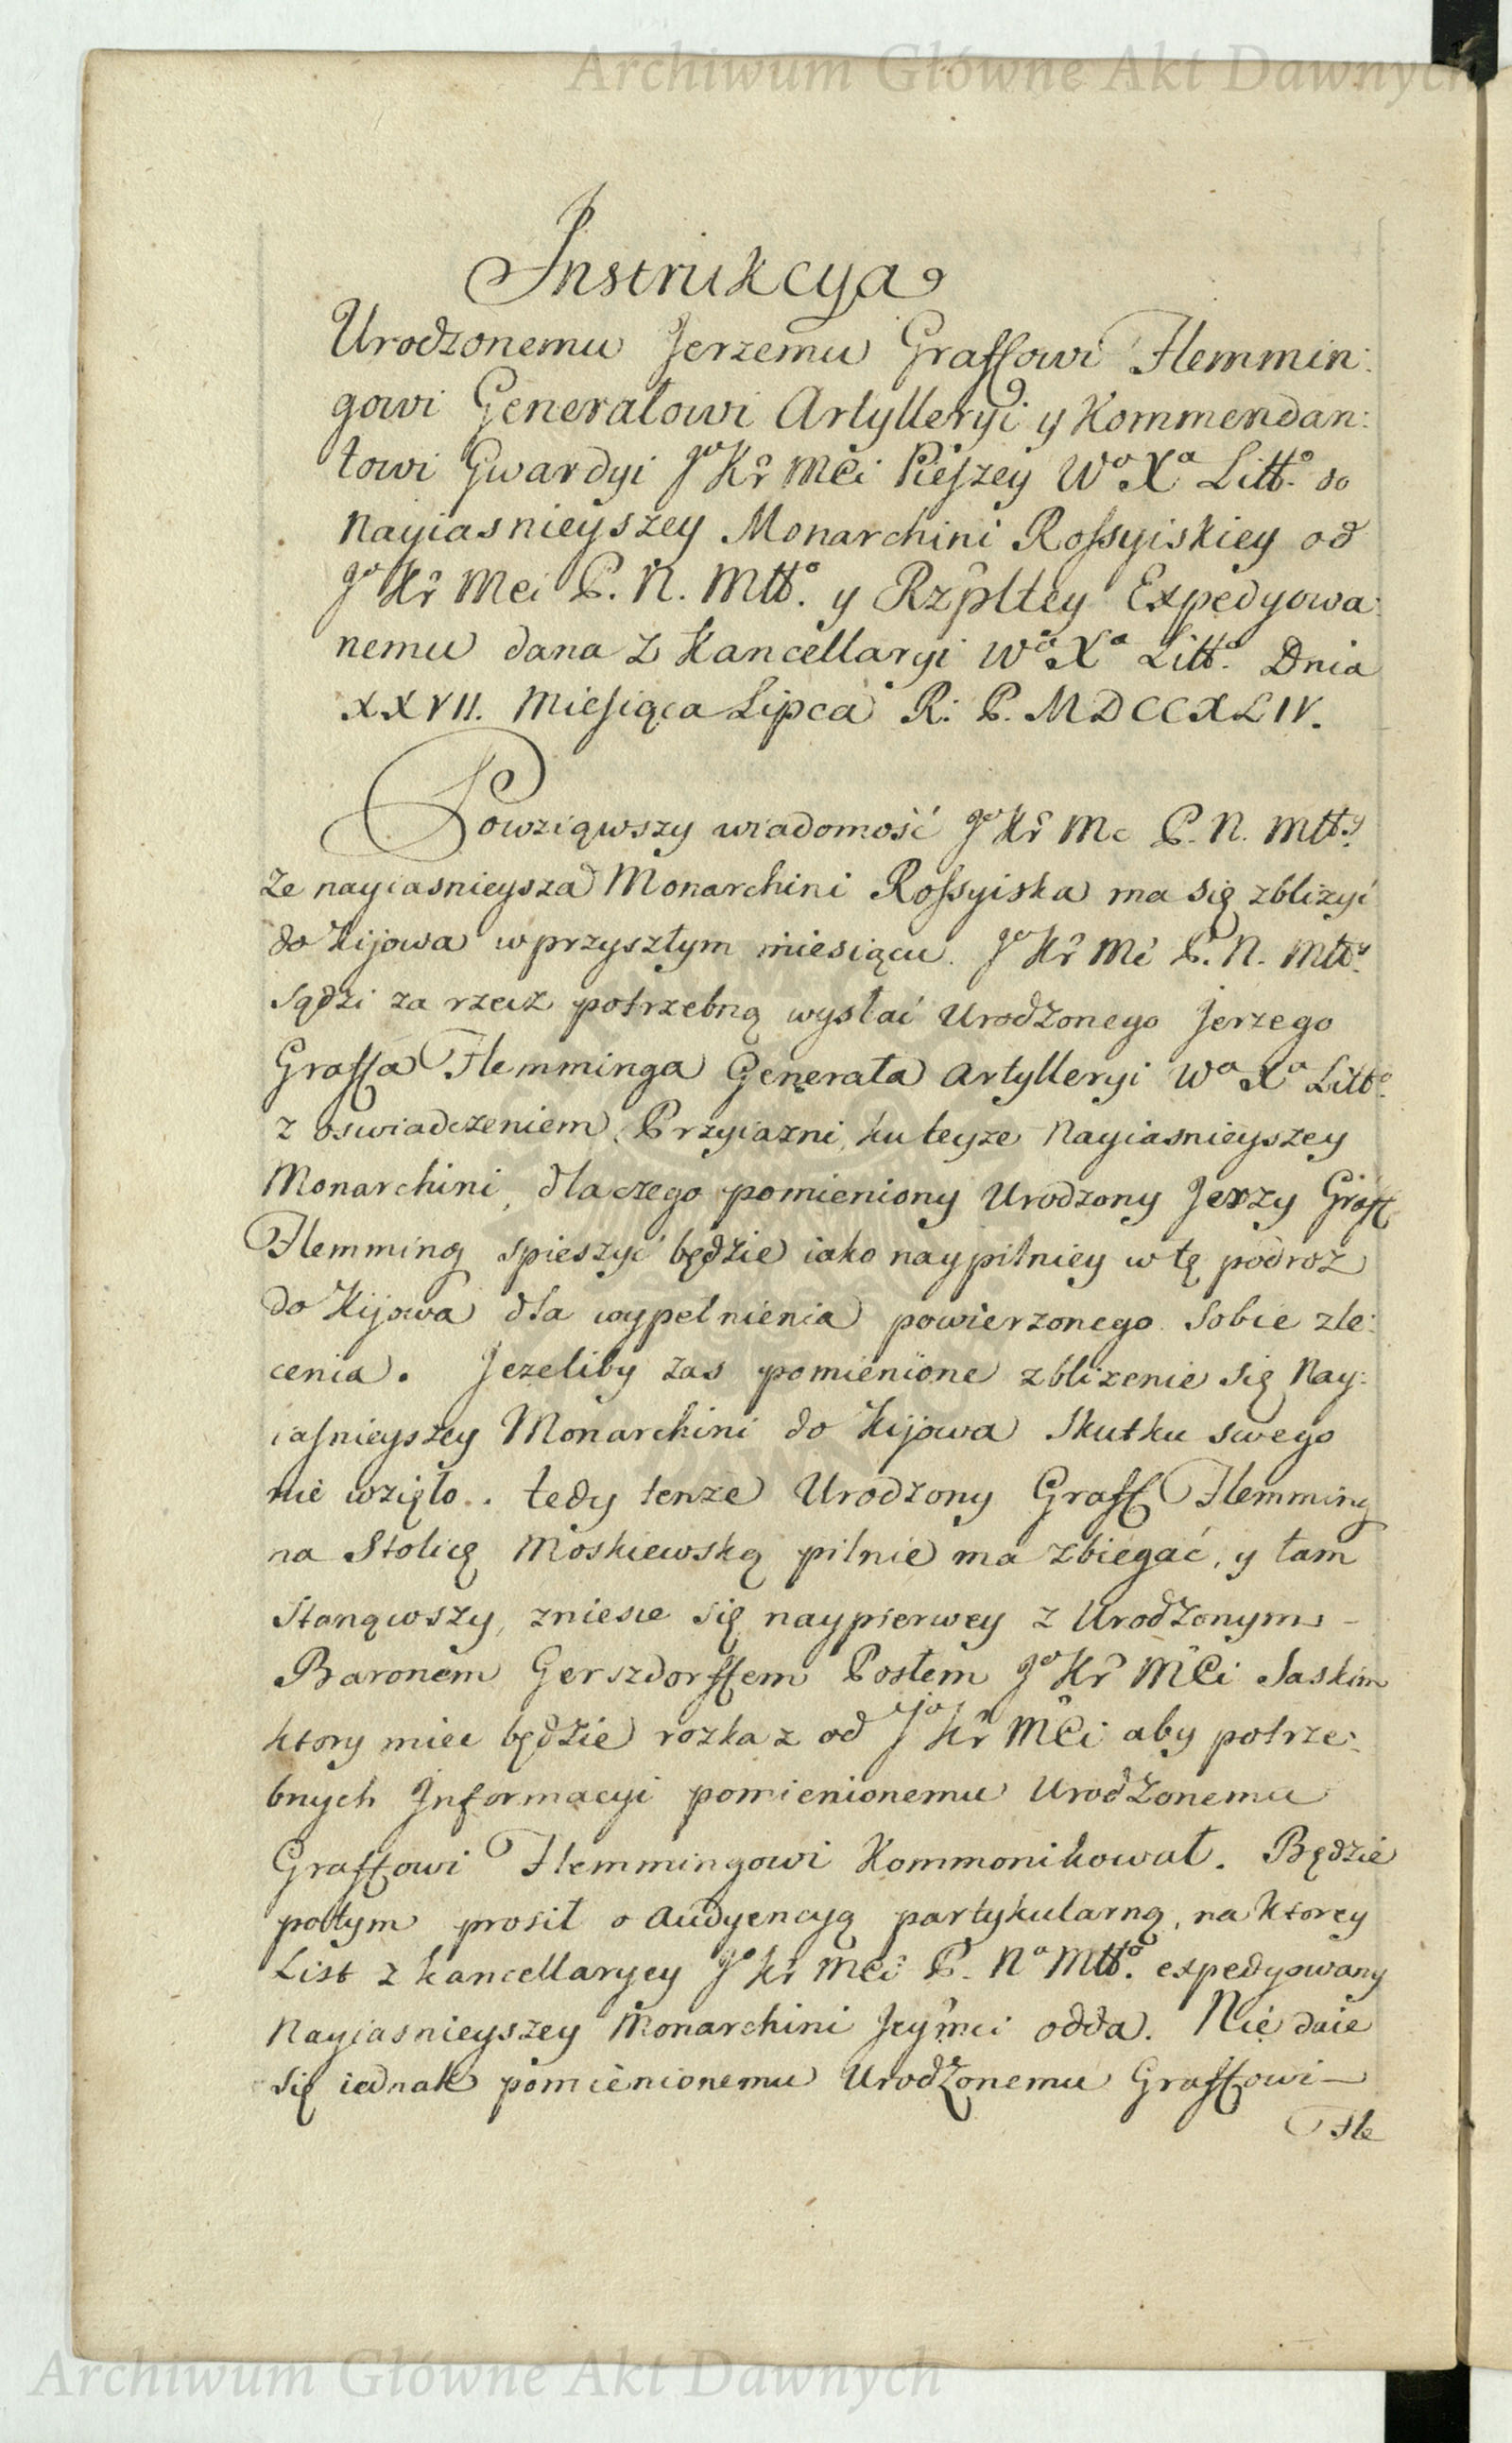 Archiwum Główne Akt Dawnych
Instrukcya
Urodzonemu Jerzemu Graffowi Flemmin:
gowi Generałowi Artylleryi y Kommendan:
towi Gwardyi Jº Kr̂ Mĉi Pieszey Wº Xª Littº do
Nayiasnieyszey Monarchini Rossyiskiey od
Jº Kr̂ Mci P. N. Mttº. y Rzp̂ltey Expedyowa:
nemu dana z Kancellaryi Wº Xª Littº. Dnia
XXVII. Miesiąca Lipca R: P. MDCCXLIV.
Powziąwszy wiadomość Jº Kr̂ Mc P. N. Mttʸ.
że nayiasnieysza Monarchini Rossyiska ma się zbliżyć
do Kijowa w przyszłym miesiącu. Jº Kr̂ Mć P. N. Mttʸ.
sądzi za rzecz potrzebną wysłać Urodzonego Jerzego
Graffa Flemminga Generała Artylleryi Wº Xª Littº.
z oswiadczeniem Przyiazni ku teyze Nayiasnieyszey
Monarchini, dlaczego pomieniony Urodzony Jerzy Graff
Flemming spieszyć będzie iako naypilniey w tę podroż
do Kijowa dla wypełnienia powierzonego sobie zle:
cenia. Jezeliby zas pomienione zblizenie się Nay:
iasnieyszey Monarchini do Kijowa Skutku swego
nie wzięło.. tedy tenze Urodzony Graff Flemming
na Stolicę Moskiewską pilnie ma zbiegać, y tam
Stanąwszy, zniesie się naypierwey z Urodzonym -
Baronem Gerszdorffem Posłem Jº Kr̂ Mĉi Saskim
ktory miec będzie rozkaz od Jº Kr̂ Mĉi aby potrze:
bnych Informacyi pomienionemu Urodzonemu
Graffowi Flemmingowi Kommonikował. Będzie
potym prosił o Audyencyą partykularną, na ktorey
List z kancellaryey Jº Kr̂ Mci P. Nº Mttº. expedyowany
Nayiasnieyszey Monarchini Jeym̂ci odda. Nie daie
się iednak pomienionemu Urodzonemu Graffowi -
Fle
Archiwum Główne Akt Dawnych